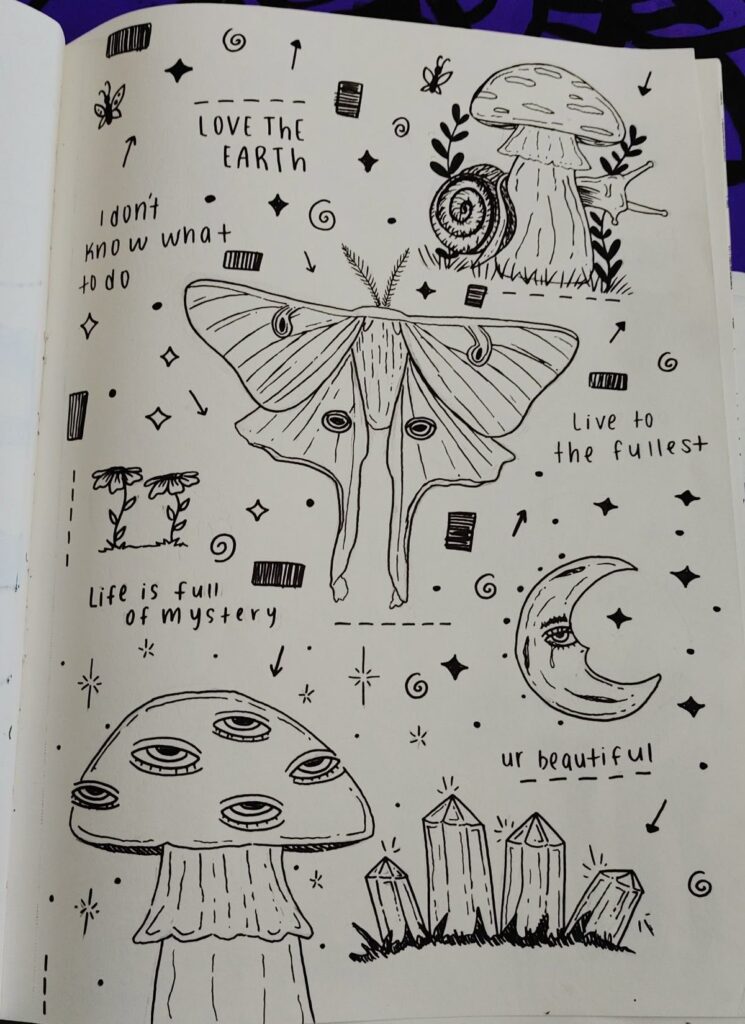 LOVE THE
EARTH
I don't
know what
to do
Live to
the fullest
Life is full
of mystery
ur beautiful